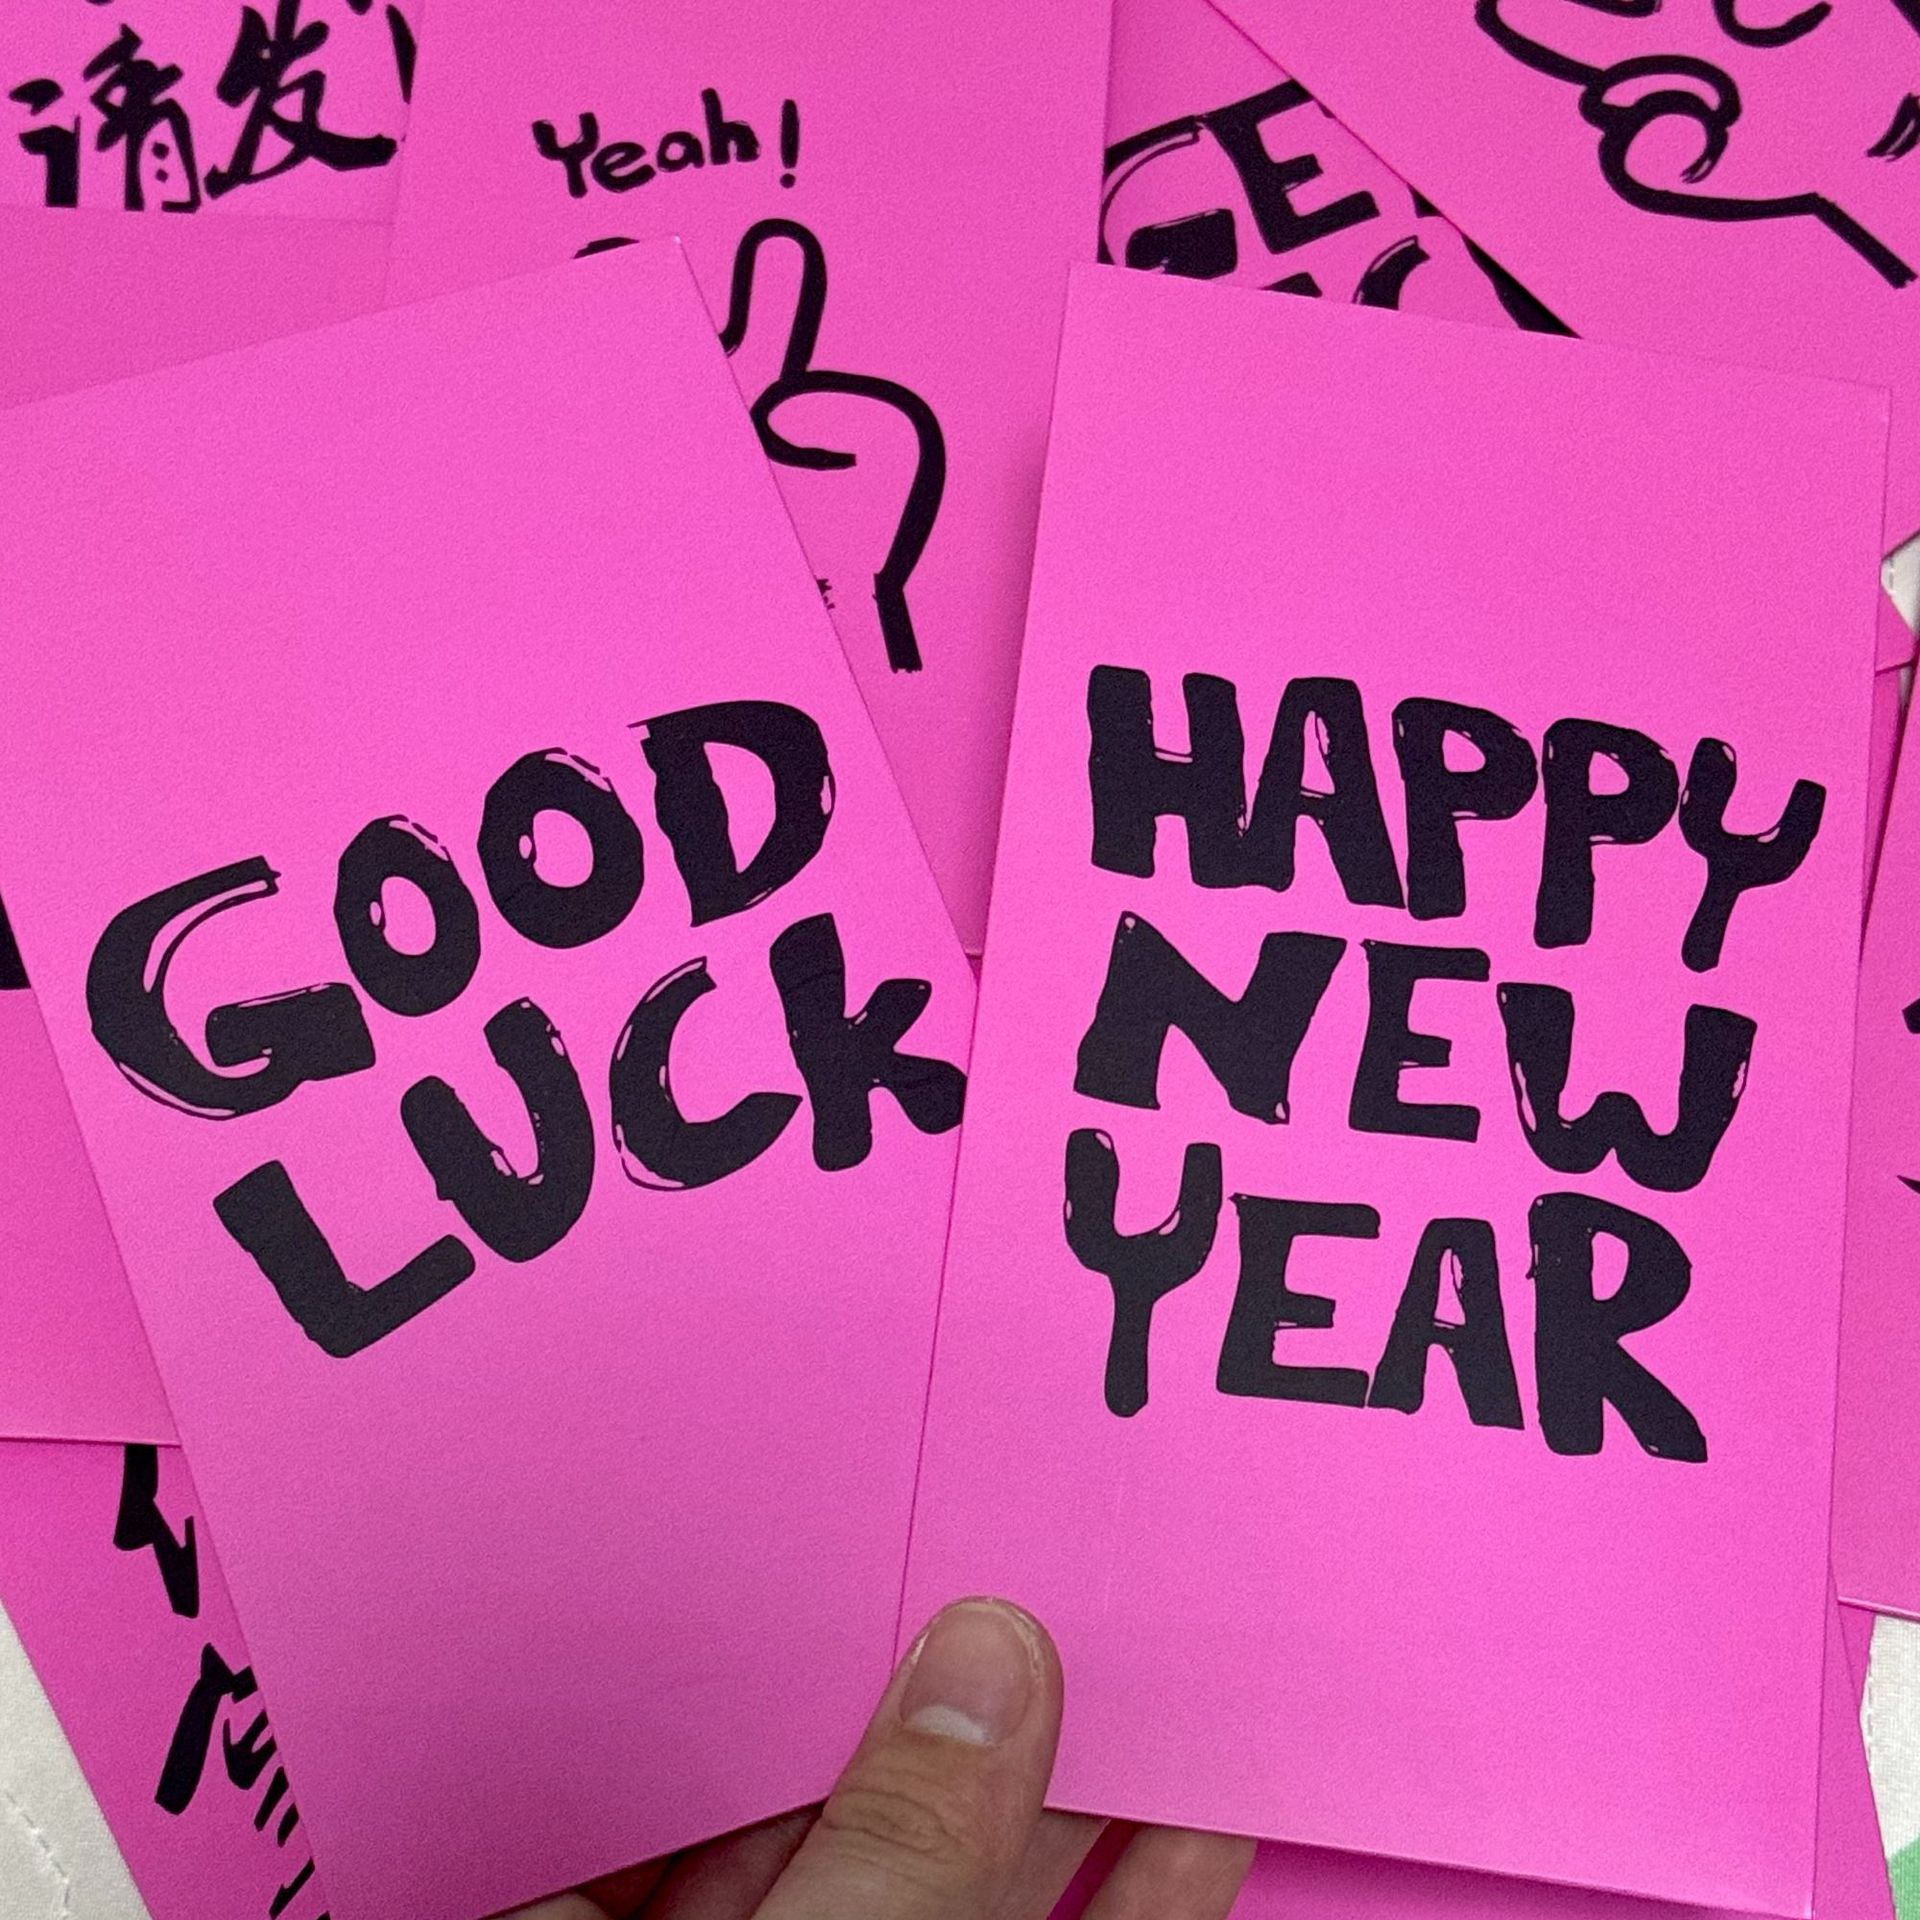 请发
Yeah!
GOOD
LUCK
HAPPY
NEW
YEAR